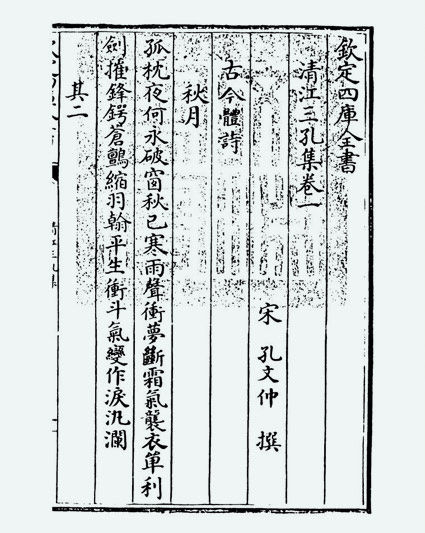 欽定四庫全書
清江三孔集卷一
宋 孔文仲 撰
古今體詩
秋月
孤枕夜何永破窗秋已寒雨聲衝夢斷霜氣襲衣單利
劍摧鋒鍔蒼鸇縮羽翰平生衝斗氣變作淚汍瀾
其二